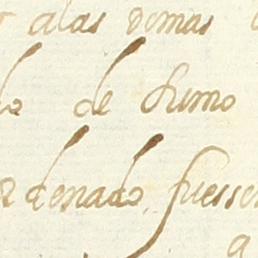 alas demas
do de humo
ordenado, fuessen
a